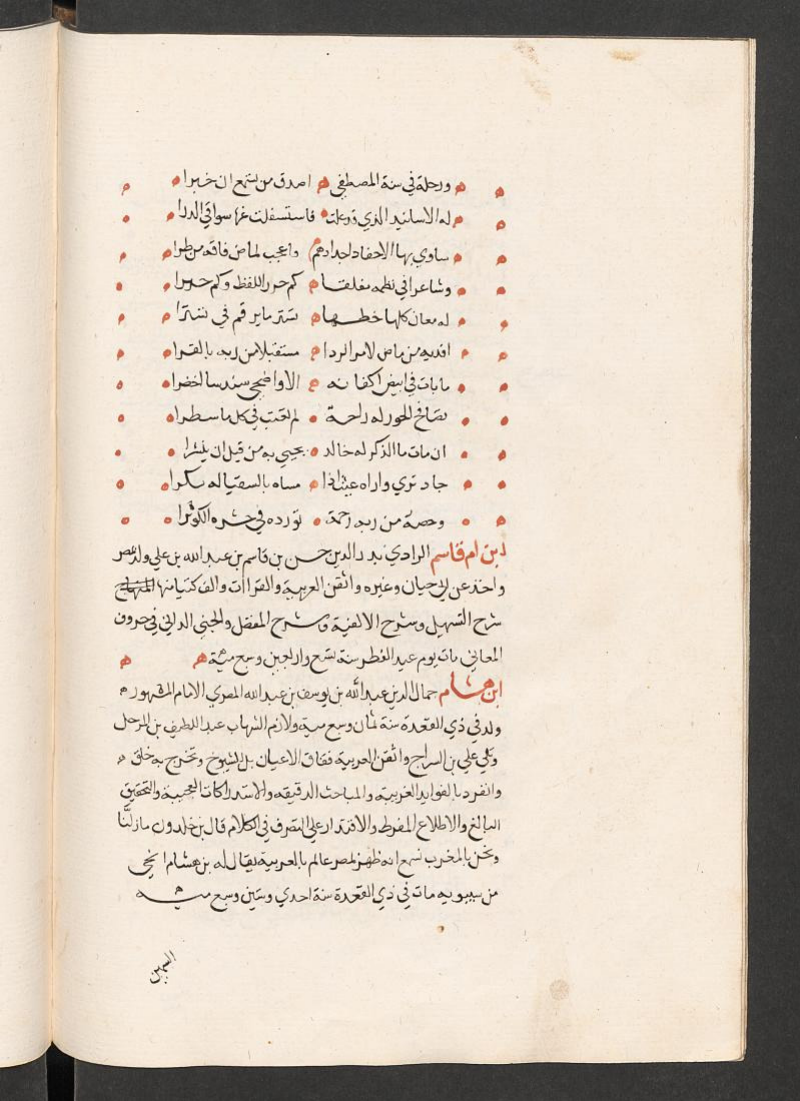 ورحلة في سنة المصطفي اصدق من تسمع ان خبرا
له الاسانيد الذي قد علت فاستسفلت عنها سواقي الدرا
ساوي بها الاحفاد اجدادهم واعجب لماض فاقه من طرا
وشاعرا في نظمه مفلقا كم حرر اللفظ وكم حبرا
له معان كلها خطها تستر ما يرقم في تسترا
افديه من ماض لامر الردا مستقبلا من ربه بالقرا
ما بات في ابيض اكفانه الا واضحي سندسا اخضرا
تصافح الحور له راحة لم تعتب في كل ما سطرا
ان مات ما الذكر له خالد يحيي به من قبل ان ينشرا
جاد ثري واراه غيث اذا مساه بالسقيا له بكرا
وخصه من ربه رحمة تورده في حشره الكوثرا
ابن ام قاسم الرادي بدر الدين حسن بن قاسم بن عبد الله بن علي ولد بمصر
واخذ عن ابي حيان وغيره واتقن العربية والقراات والف كتبا منها
شرح التسهيل وشرح الالفية وشرح المفضل والجني الداني في حروف
المعاني مات يوم عيد الفطر سنة تسع واربعين وسبع مئة
ابن هشام جمال الدين عبد الله بن يوسف بن عبد الله المصري الامام المشهور
ولد في ذي القعدة سنة ثمان وسبع مئة ولازم الشهاب عبد اللطيف بن المرحل
وتلي علي بن السراج واتقن العربية ففاق الاعيان بل الشيوخ وتخرج به خلق
وانفرد بالفوايد الغريبة والمباحث الدقيقه والاستدراكات العجيبة والتحقيق
البالغ والاطلاع المفرط والاقتدار علي التصرف في الكلام قال بن خلدون مازلنا
ونحن بالمغرب نسمع انه ظهر بمصر عالم بالعربية يقال له بن هشام انحي
من سيبويه مات في ذي القعدة سنة احدي وستين وسبع مئه
السمين